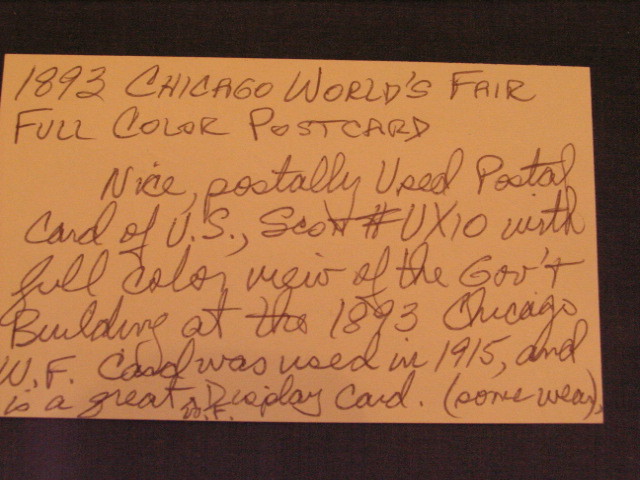 1893 CHICAGO WORLD'S FAIR
FULL COLOR POSTCARD
Nice, postally Used Postal
Card of U.S., Scott #UX10 with
full color view of the Gov't
Building at the 1893 Chicago
W.F. Card was used in 1915, and
is a great W.F. Display Card. (some wear).